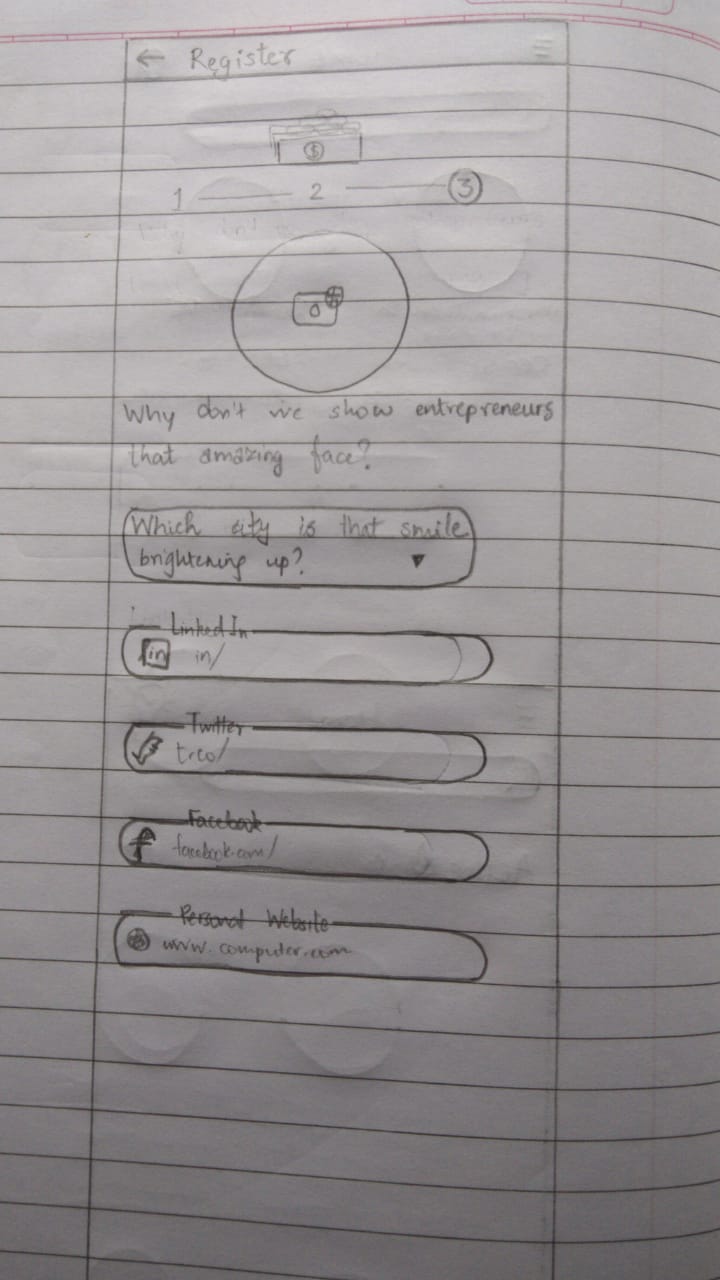 ← Register
$
1 2 3
Why don't we show entrepreneurs
that amazing face?
Which city is that smile
brightening up?
LinkedIn
in in/
Twitter
t.co/
Facebook
f facebook.com/
Personal Website
www.computer.com